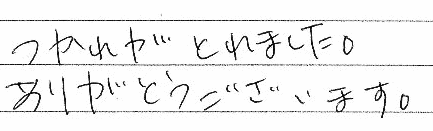 つかれがとれました。
ありがとうございます。